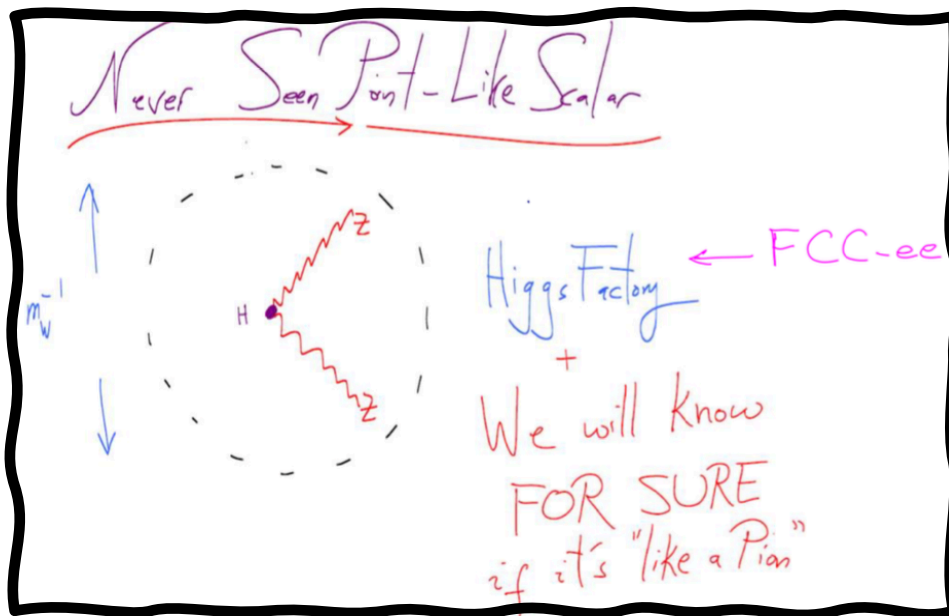 Never Seen Point-Like Scalar
m_W^-1
H
Z
Z
Higgs Factory ← FCC-ee
+
We will know
FOR SURE
if it's "like a Pion"